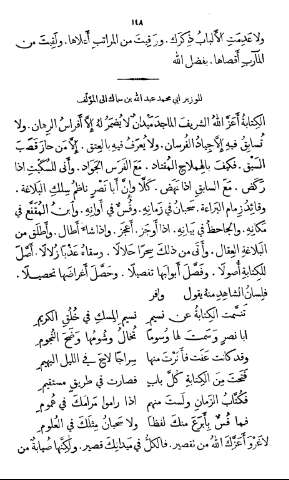 ١٤٨
ولا عَدِمَتِ الأَلبابُ ذِكرَك. ورَقِيتَ من المَراتِبِ أَعلاها. ولَقِيتَ من
المآرِبِ أَقصاها. بفضل الله
للوزير ابي محمد عبد الله بن سماك الى المؤلّف
الكِتابةُ أَعَزَّ اللهُ الشريفَ الماجدَ مَيدانٌ لا يُضمَرُ لهُ إلَّا أَفراسُ الرِهان. ولا
تُسابِقُ فيهِ إلَّا جِيادُ الفُرسان. ولا يُعرَفُ فيهِ بالعِتق. إلَّا مَن حازَ قَصَبَ
السَبْق. فكيفَ بالهِملاجِ المُقتاد. مَعَ الفَرَسِ الجَواد. وأَنَّى للسُكَّيتِ اذا
رَكَضَ. مَعَ السابقِ اذا نَهَضَ. كَلَّا وإنَّ أَبا نَصرٍ ناظِمُ سِلكِ البَلاغة.
وقائدُ زِمامِ البَراعة. سَحبانُ في زَمانِهِ. وقُسٌّ في أَوانِهِ. وابنُ المُقَفَّعِ في
مَكانِهِ. والجاحظُ في بَيانِهِ. اذا أَوجَزَ. أَعجَزَ. واذا شاءَ أَطال. وأَطلَقَ من
البَلاغةِ العِقال. وأَتى من ذلكَ سِحرًا حَلالًا. وسقاهُ عَذبًا زُلالًا. أَصَّلَ
للكِتابةِ أُصولًا. وفَصَّلَ أَبوابَها تفصيلًا. وحَصَّلَ أَغراضَها تحصيلًا.
فلِسانُ الشاهِدِ منهُ يقول وافر
تَنَسَّمَتِ الكتابةُ عن نسيمٍ نَسيمِ المِسكِ في خُلُقِ الكريمِ
أَبا نصرٍ وَسَمتَ لها وُسومًا تُخالُ وُشومُها وَضَحَ النُجومِ
وقد كانت عَفَت فأَنَرتَ منها سِراجًا لاحَ في الليلِ البهيمِ
فَتَحتَ منَ الكِتابةِ كُلَّ بابٍ فصارت في طريقٍ مستقيمِ
فكُتَّابُ الزمانِ ولستَ منهم اذا راموا مَرامَكَ في هُمومِ
فما قُسٌّ بأَبرَعَ منكَ لفظًا ولا سَحبانُ مِثلُكَ في العُلومِ
لا غَروَ أَعَزَّكَ اللهُ من تقصير. فالكلُّ في مَيدانِكَ قصير. ولكنَّها صُبابةٌ من